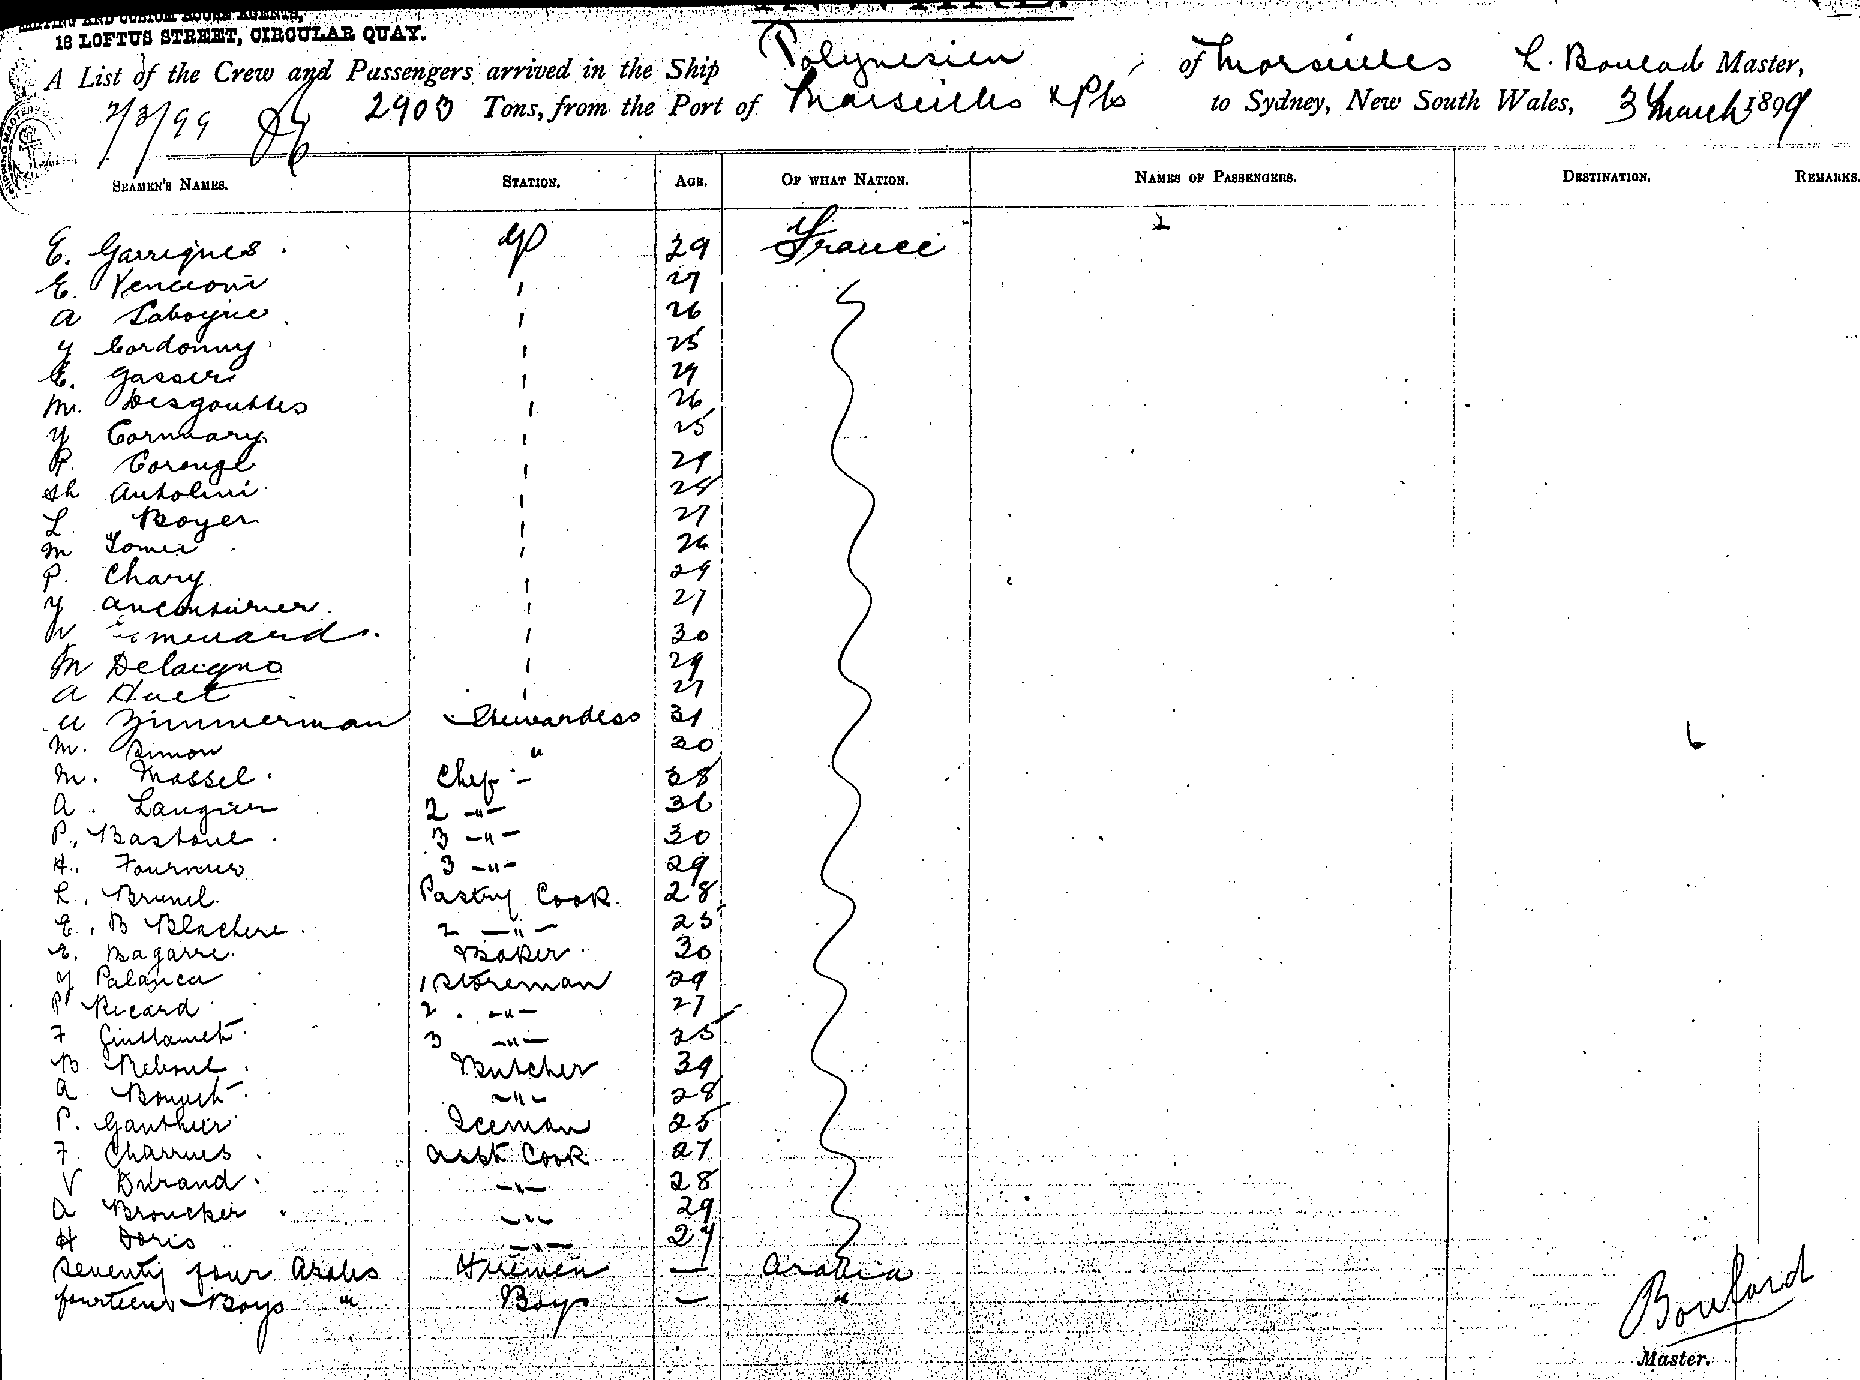 18 LOFTUS STREET, CIRCULAR QUAY.
A List of the Crew and Passengers arrived in the Ship Polynesien of Marseilles L. Boulard Master,
2903 Tons, from the Port of Marseilles & Pts to Sydney, New South Wales, 3 March 1899
7/3/99
SEAMEN'S NAMES. STATION. AGE. OF WHAT NATION. NAMES OF PASSENGERS. DESTINATION. REMARKS.
E. Garrigues 29 France
E. Vencioni 27
A 26
Y Cordonny 25
E. Gasser 29
M. Desgouttes 26
Y 25
P. 29
Antolini
L Boyer 27
M 26
P. Chary 29
Y 27
30
M 29
A Huet 27
Zimmerman Stewardess 31
M. Simon " 30
M. Massel Chef 38
A. Laugier 2 -"- 36
P. Bastone 3 -"- 30
H. Fournier 3 -"- 29
L. Brunel Pastry Cook 28
E. B Blachere 2 -"- 25
E. Bagarre Baker 30
Y Palanca 1 Storeman 29
P Ricard 2 -"- 27
F 3 -"- 25
B Reboul Butcher 39
A -"- 28
P. Gauthier Iceman 25
F. Asst Cook 27
V Durand -"- 28
A Broucker -"- 29
H Doris -"- 27
Seventy four Arabs Firemen — Arabia
fourteen Boys " Boys — "
Master.